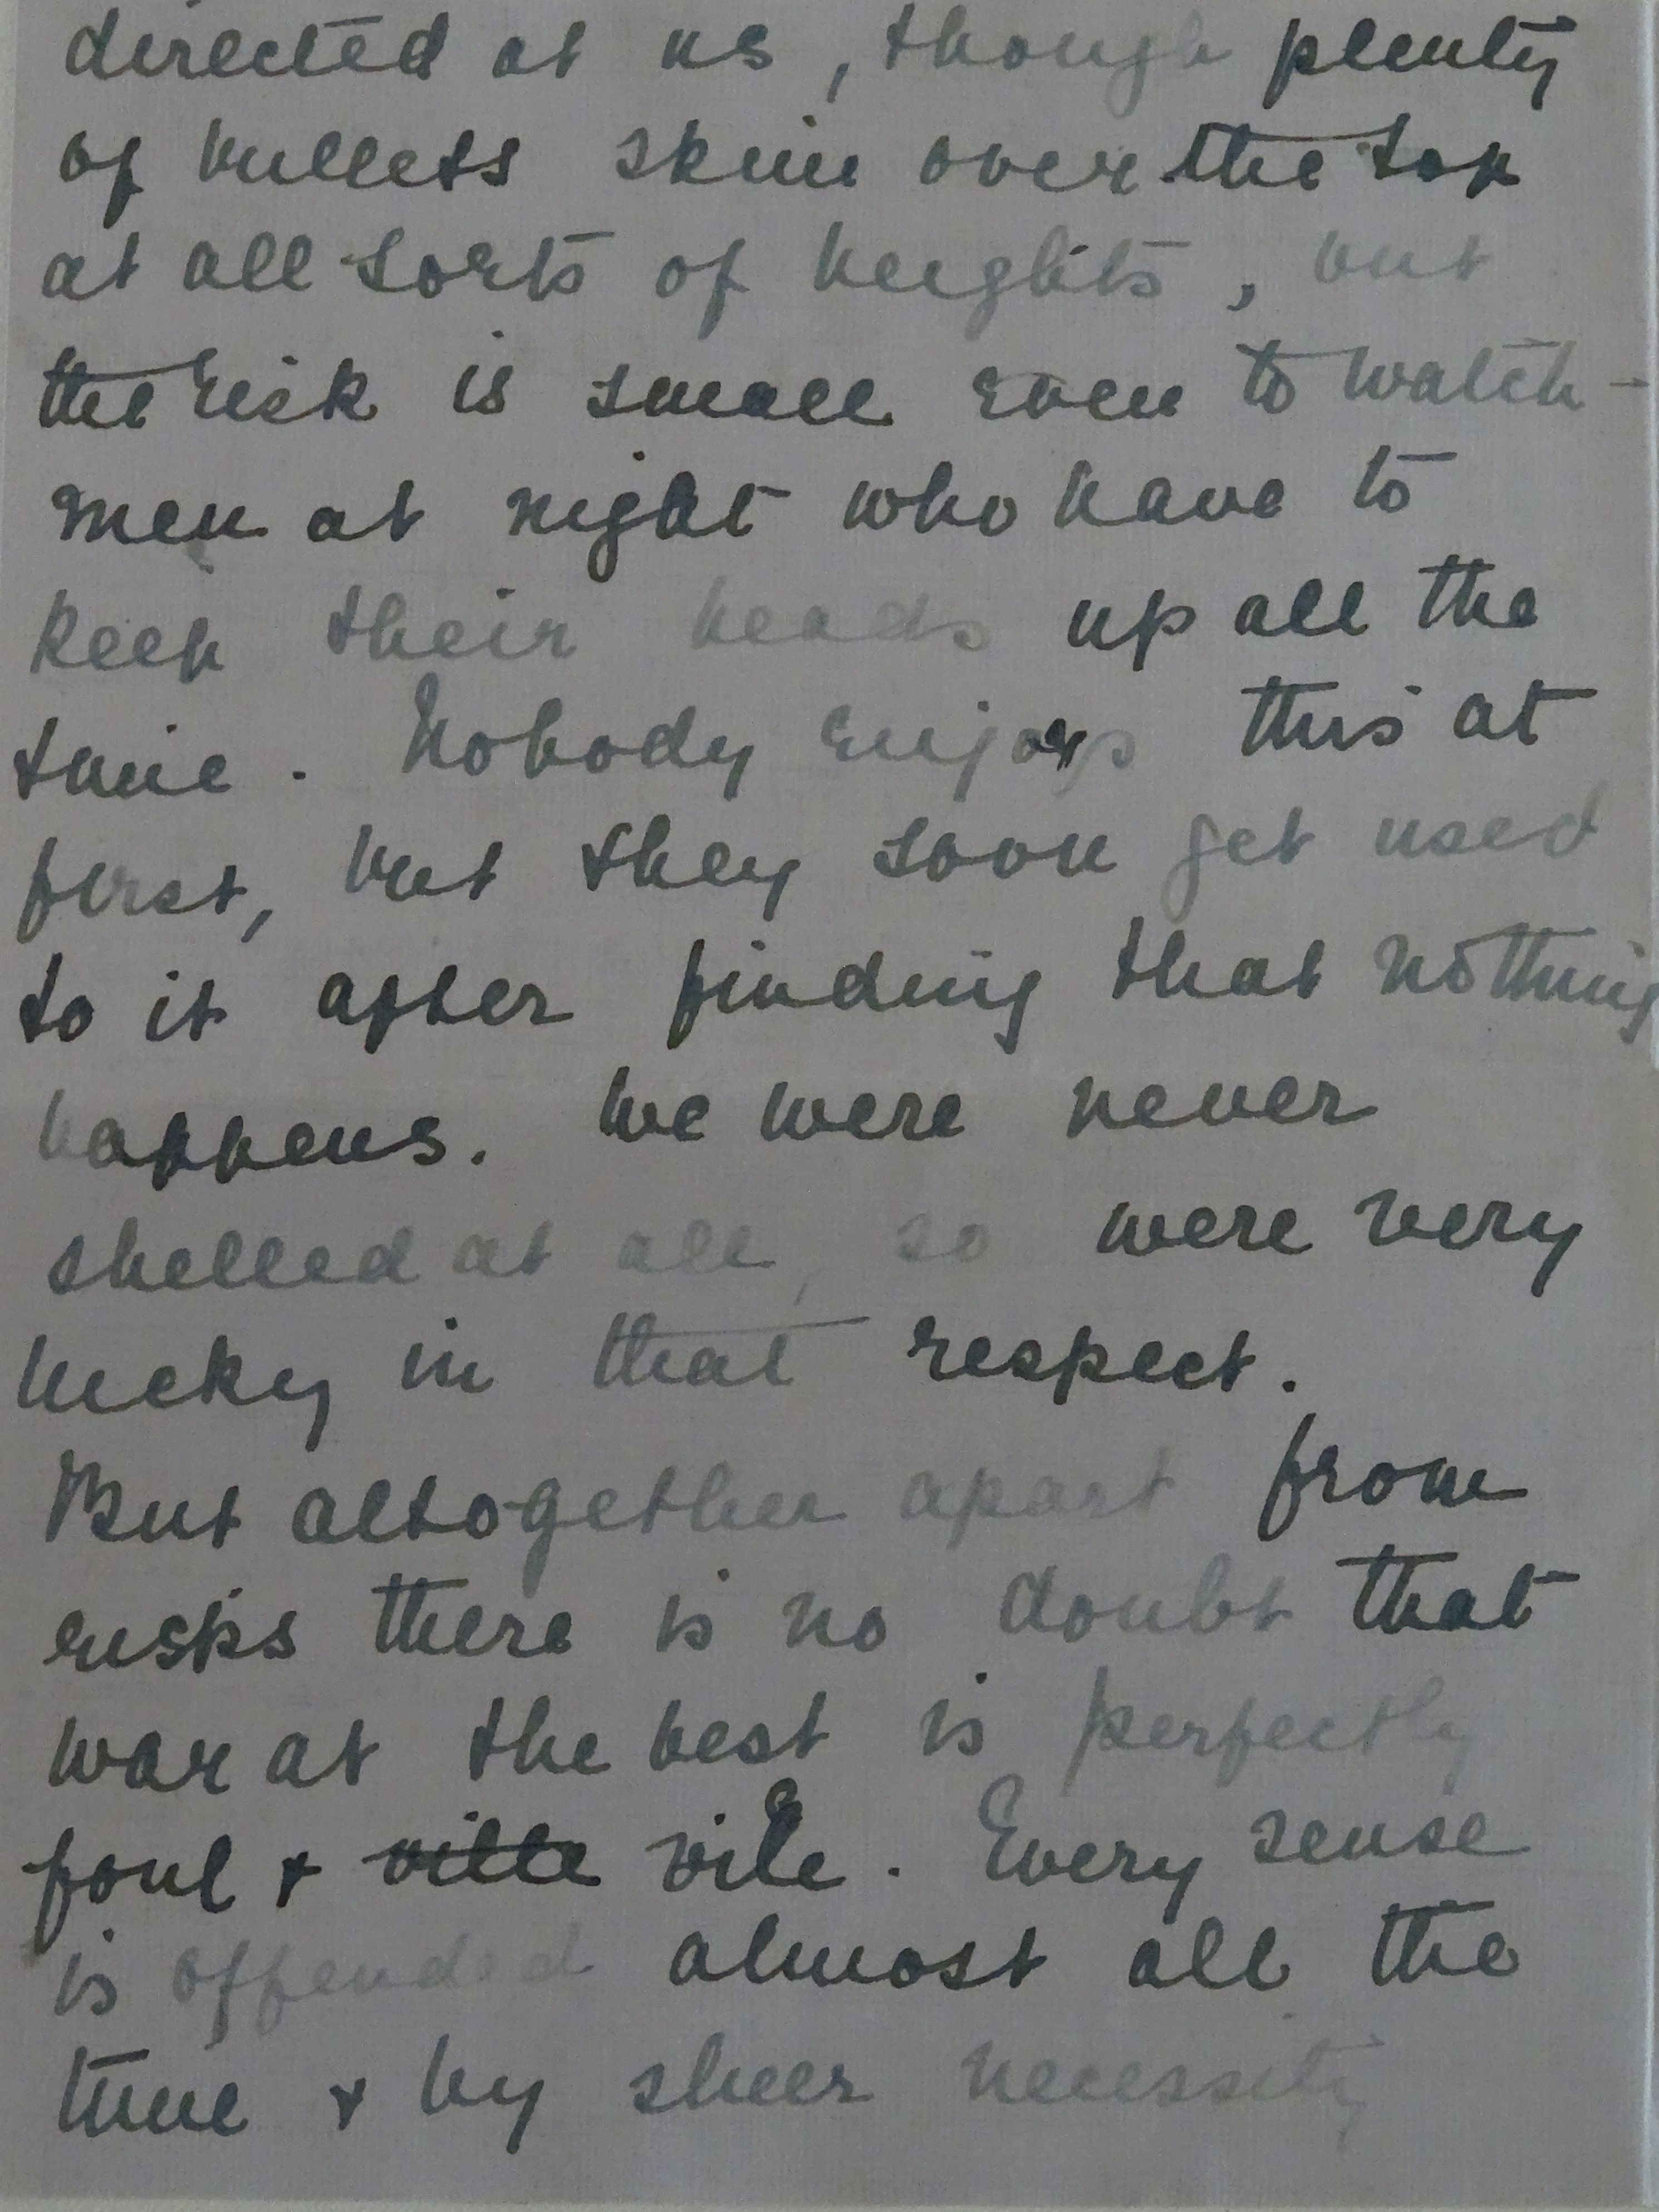 directed at us, though plenty
of bullets skim over the top
at all sorts of heights, but
the risk is small even to watch-
men at night who have to
keep their heads up all the
time. Nobody enjoys this at
first, but they soon get used
to it after finding that nothing
happens. We were never
shelled at all, so were very
lucky in that respect.
But altogether apart from
risks there is no doubt that
war at the best is perfectly
foul & vitte vile. Every sense
is offended almost all the
time & by sheer necessity